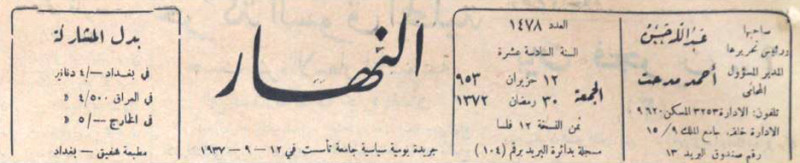 صاحبها
ورئيس تحريرها
عبدالله حسن
المدير المسؤول
المحامي
أحمد مدحت
تلفون: الادارة ٣٢٥٣ المسكن ٩٦٢٠
الادارة خلف جامع الملك ١٥/٩
رقم صندوق البريد ١٣
العدد ١٤٧٨
السنة السادسة عشرة
الجمعة
١٢ حزيران ٩٥٣
٣٠ رمضان ١٣٧٢
ثمن النسخة ١٢ فلسا
مسجلة بدائرة البريد برقم (١٠٤)
النهار
جريدة يومية سياسية جامعة تأسست في ١٢ - ٩ - ١٩٣٧
بدل المشاركة
في بغداد —/٤ دنانير
في العراق ٤/٥٠٠ »
في الخارج —/٥ »
مطبعة شفيق - بغداد